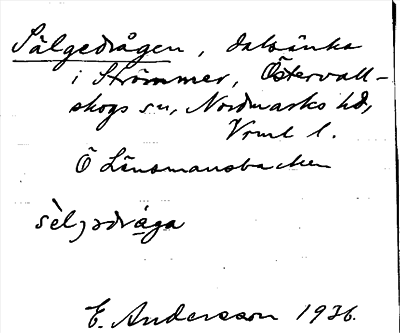 Sälgedrågen, dalsänka
i Strömmer, Östervall-
skogs sn, Nordmarks hd,
Vrml l.
Ö Länsmansbacken
sèljədråga
E. Andersson 1936.